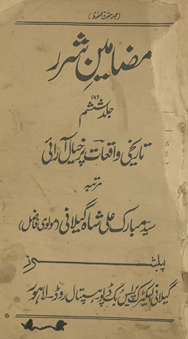 (جملہ حقوق محفوظ)
مضامینِ شرر
جلد ششم
تاریخی واقعات پر خیال آرائی
مرتبہ
سید مبارک علی شاہ گیلانی (مولوی فاضل)
پبلشرز
گیلانی الیکٹرک پریس بک ڈپو ہسپتال روڈ۔ لاہور